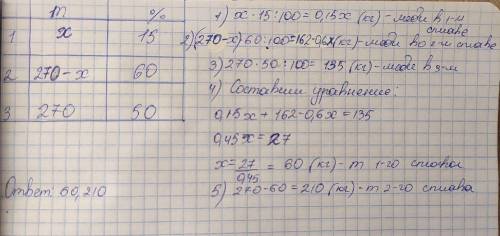 m %
1 x 15
2 270-x 60
3 270 50
Ответ: 60, 210
1) x · 15 : 100 = 0,15x (кг) - меди в 1-м
сплаве
2) (270-x) 60 : 100 = 162-0,6x (кг) - меди во 2-м сплаве
3) 270 · 50 : 100 = 135 (кг) - меди в 3-м
4) Составим уравнение:
0,15x + 162 - 0,6x = 135
0,45x = 27
x = 27/0,45 = 60 (кг) - m 1-го сплава
5) 270-60 = 210 (кг) - m 2-го сплава